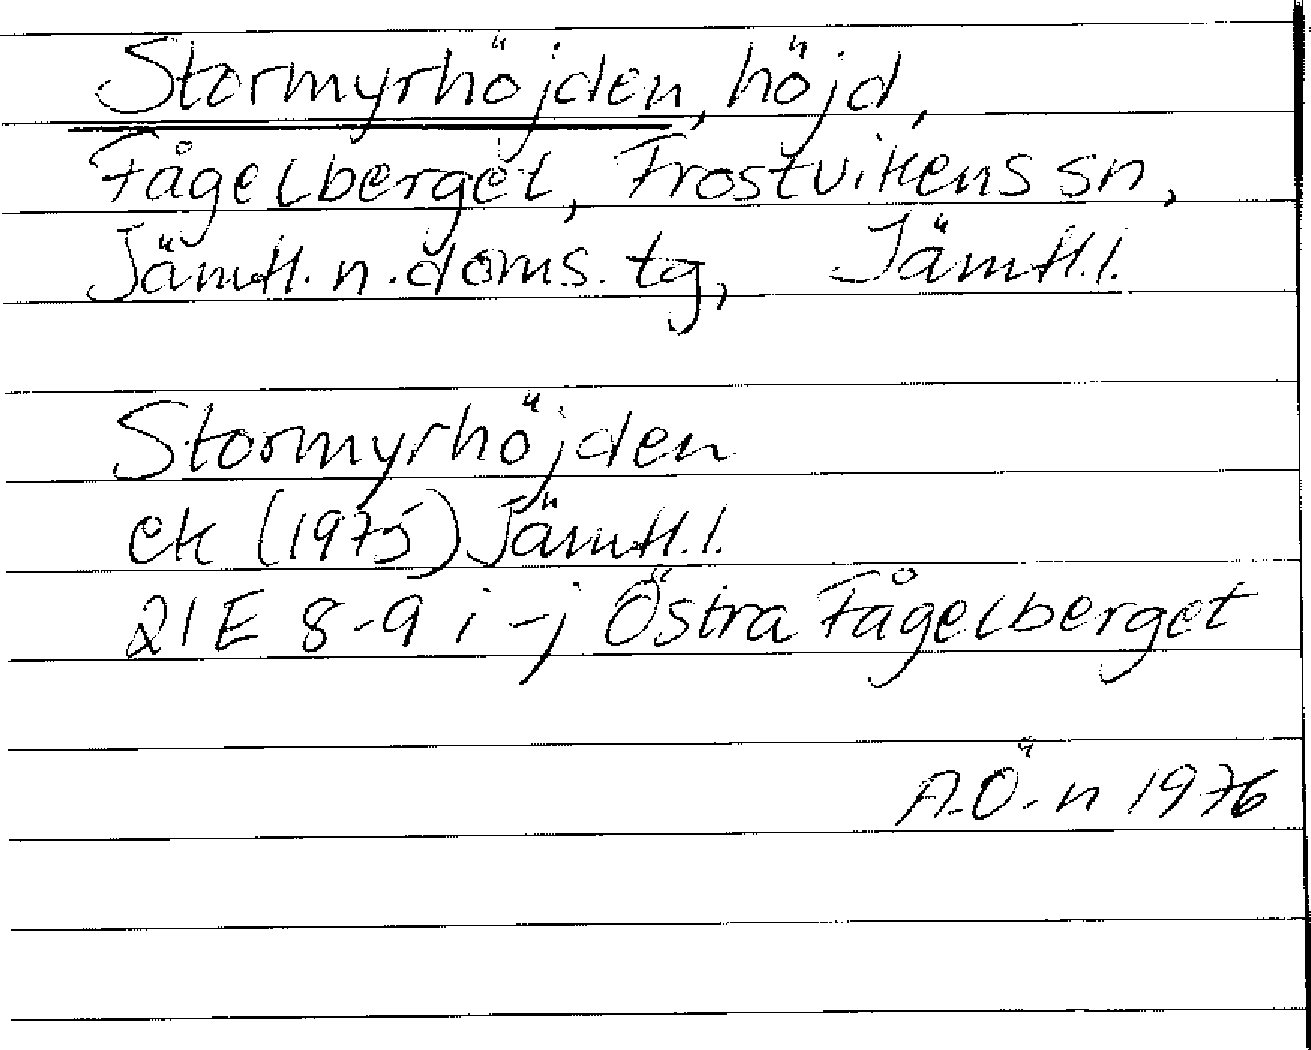 Stormyrhöjden, höjd,
Fågelberget, Frostvikens sn,
Jämtl. n. doms. tg, Jämtl. l.
Stormyrhöjden
ek (1975) Jämtl. l.
21E 8-9 i-j Östra Fågelberget
A.Ö-n 1976